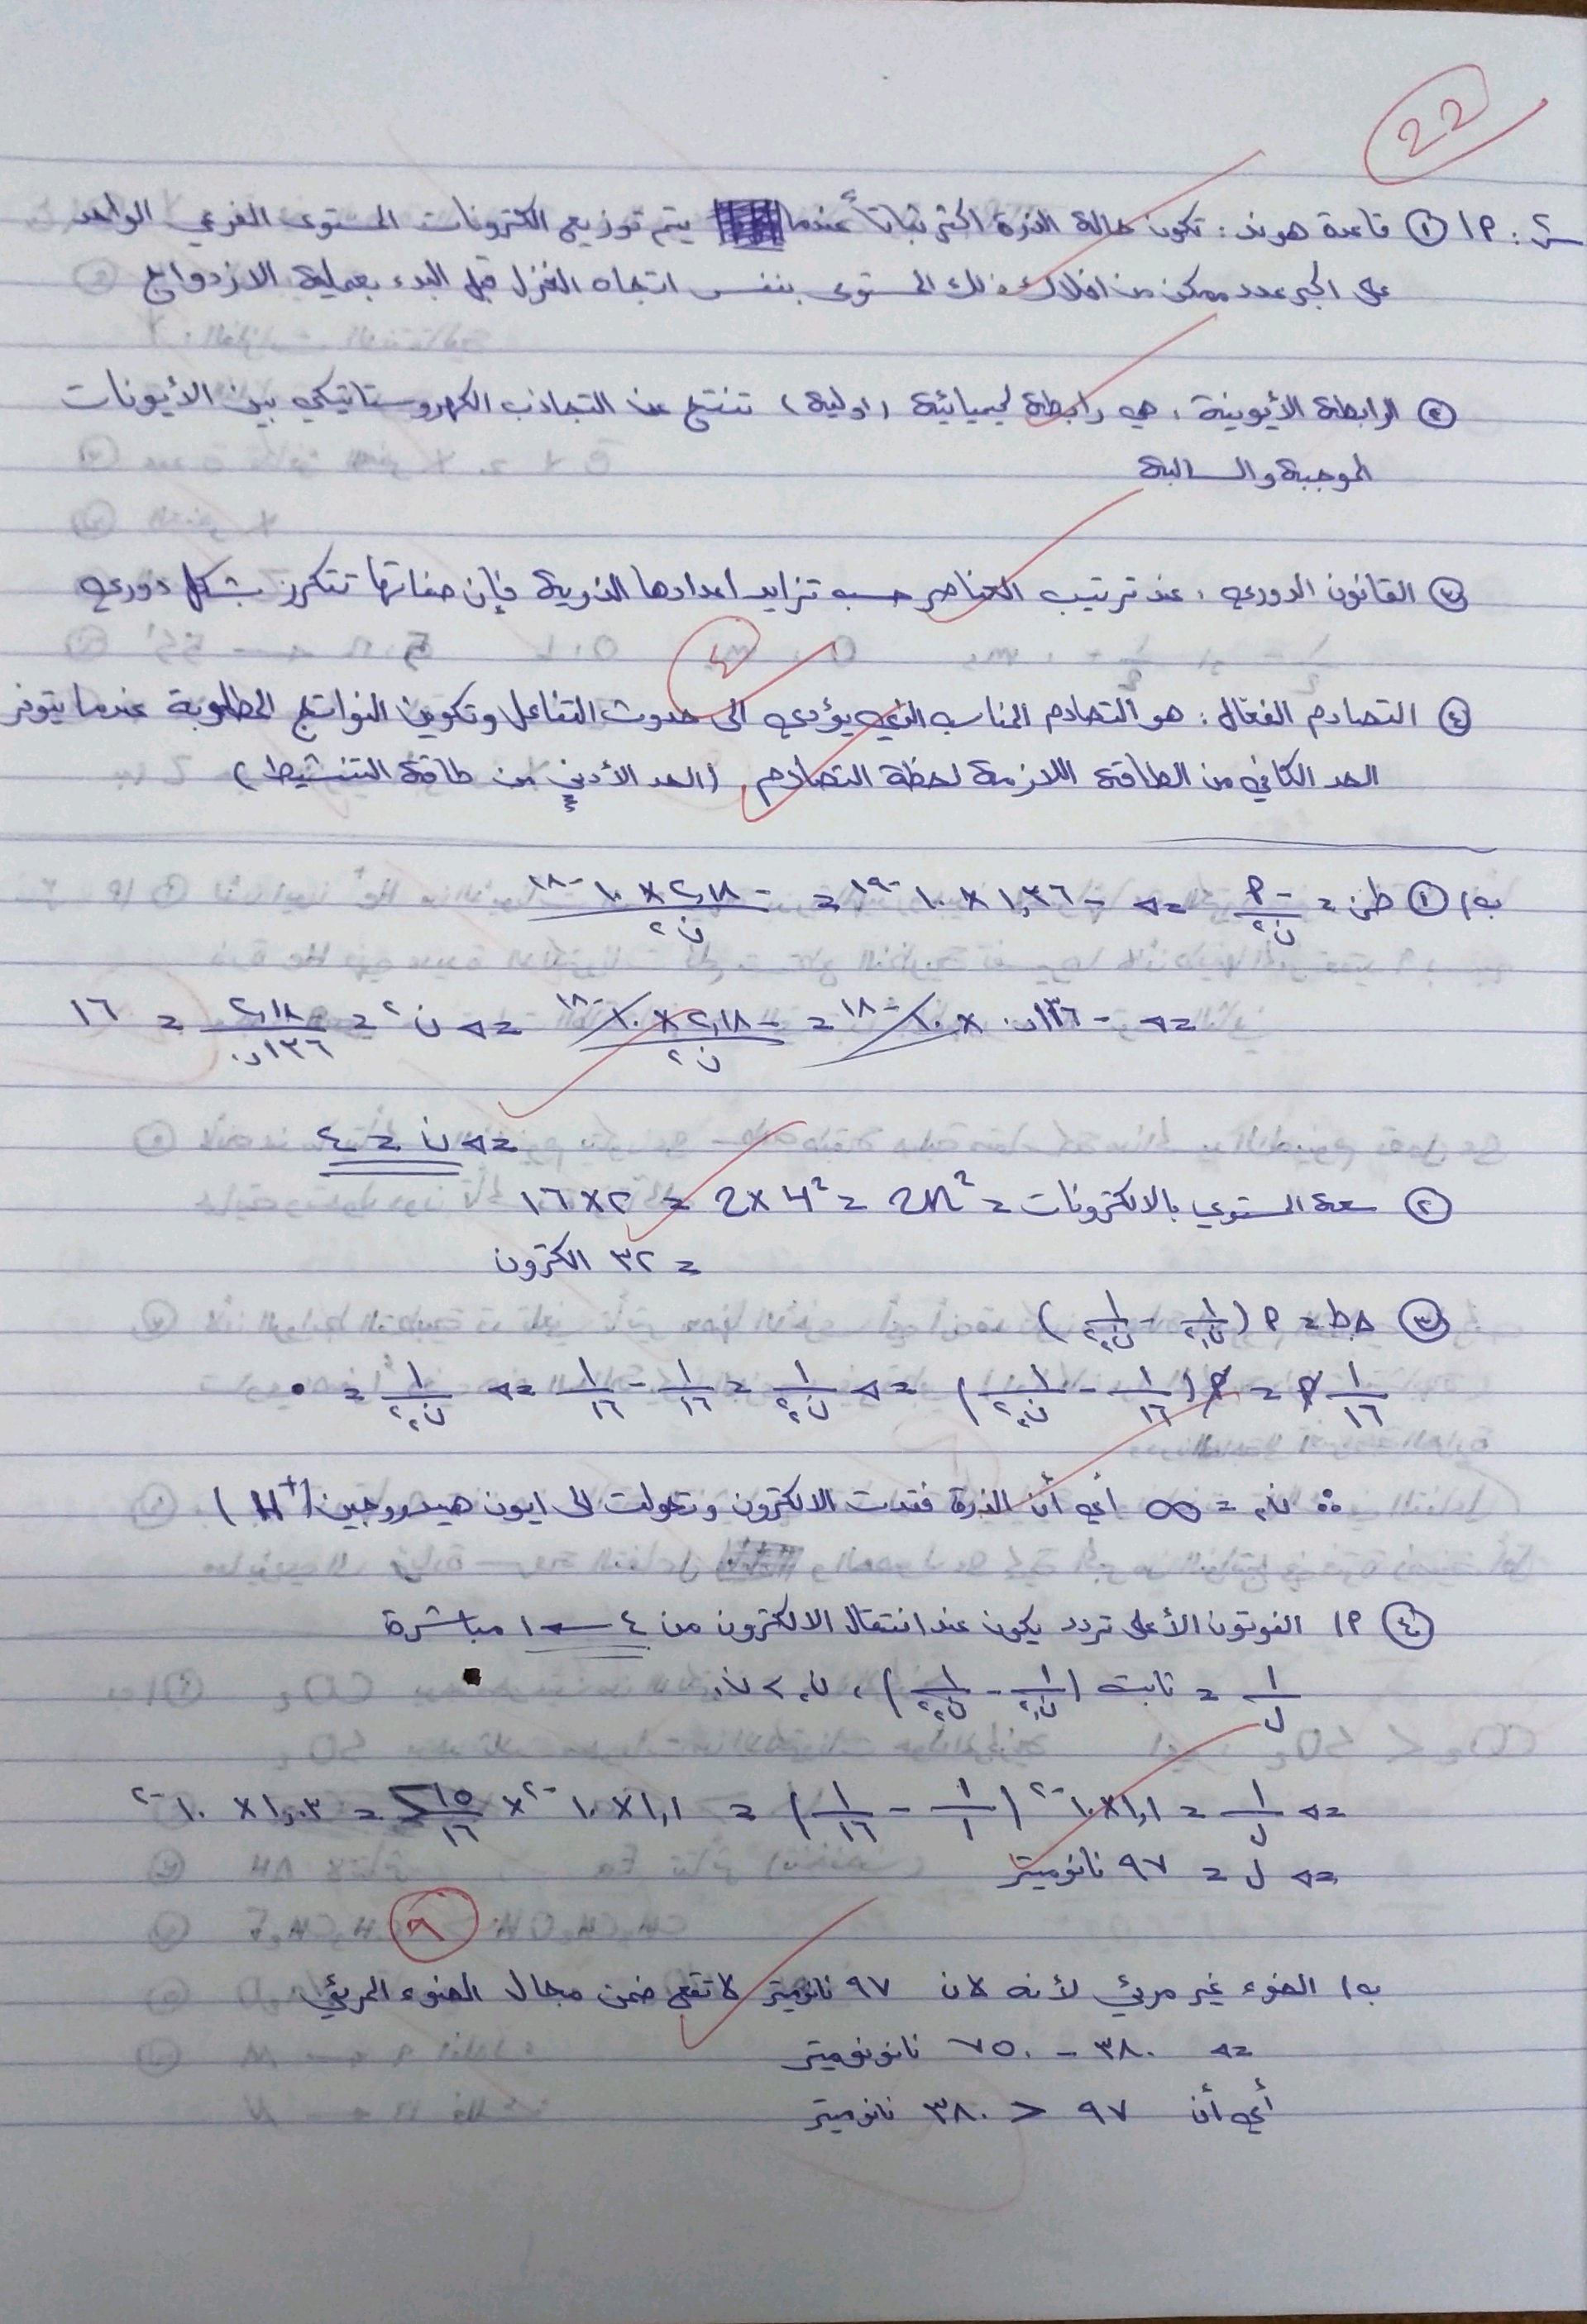 22
س٢: أ) ① قاعدة هوند: تكون حالة الذرة اكثر ثباتاً عندما يتم توزيع الكترونات المستوى الفرعي الواحد
على اكبر عدد ممكن من افلاك ذلك المستوى بنفس اتجاه الغزل قبل البدء بعملية الازدواج
② الرابطة الأيونية: هي رابطة كيميائية (اولية) تنتج عن التجاذب الكهروستاتيكي بين الأيونات
الموجبة والسالبة
③ القانون الدوري: عند ترتيب العناصر حسب تزايد اعدادها الذرية فإن صفاتها تتكرر بشكل دوري
٤
④ التصادم الفعّال: هو التصادم المناسب الذي يؤدي الى حدوث التفاعل وتكوين النواتج المطلوبة عندما يتوفر
الحد الكافي من الطاقة اللازمة لحظة التصادم (الحد الأدنى من طاقة التنشيط)
ب) ① طن = -أ/ن² ⇐ -١,٣٦ × ١٠^-١٩ = -٢,١٨ × ١٠^-١٨/ن²
⇐ -٠,١٣٦ × ١٠^-١٨ = -٢,١٨ × ١٠^-١٨/ن² ⇐ ن² = ٢,١٨/٠,١٣٦ = ١٦
⇐ ن = ٤
② سعة المستوى بالالكترونات = 2n² = 2×4² = ٢×١٦
= ٣٢ الكترون
③ Δط = أ (١/ن₁² - ١/ن₂²)
١/١٦ أ = أ (١/١٦ - ١/ن₂²) ⇐ ١/ن₂² = ١/١٦ - ١/١٦ ⇐ ١/ن₂² = ٠
∴ ن₂ = ∞ أي أن الذرة فقدت الالكترون وتحولت الى ايون هيدروجين (H⁺)
④ أ) الفوتون الأعلى تردد يكون عند انتقال الالكترون من ٤ ← ١ مباشرة
١/ل = ثابت (١/ن₁² - ١/ن₂²) ، ن₂ > ن₁
⇐ ١/ل = ١,١×١٠^-٢ (١/١ - ١/١٦) = ١,١×١٠^-٢ × ١٥/١٦ = ١,٠٣ × ١٠^-٢
⇐ ل = ٩٧ نانوميتر
٩
ب) الضوء غير مرئي لأنه لان ٩٧ نانوميتر لا تقع ضمن مجال الضوء المرئي
⇐ ٣٨٠ - ٧٥٠ نانونوميتر
أي أن ٩٧ < ٣٨٠ نانوميتر